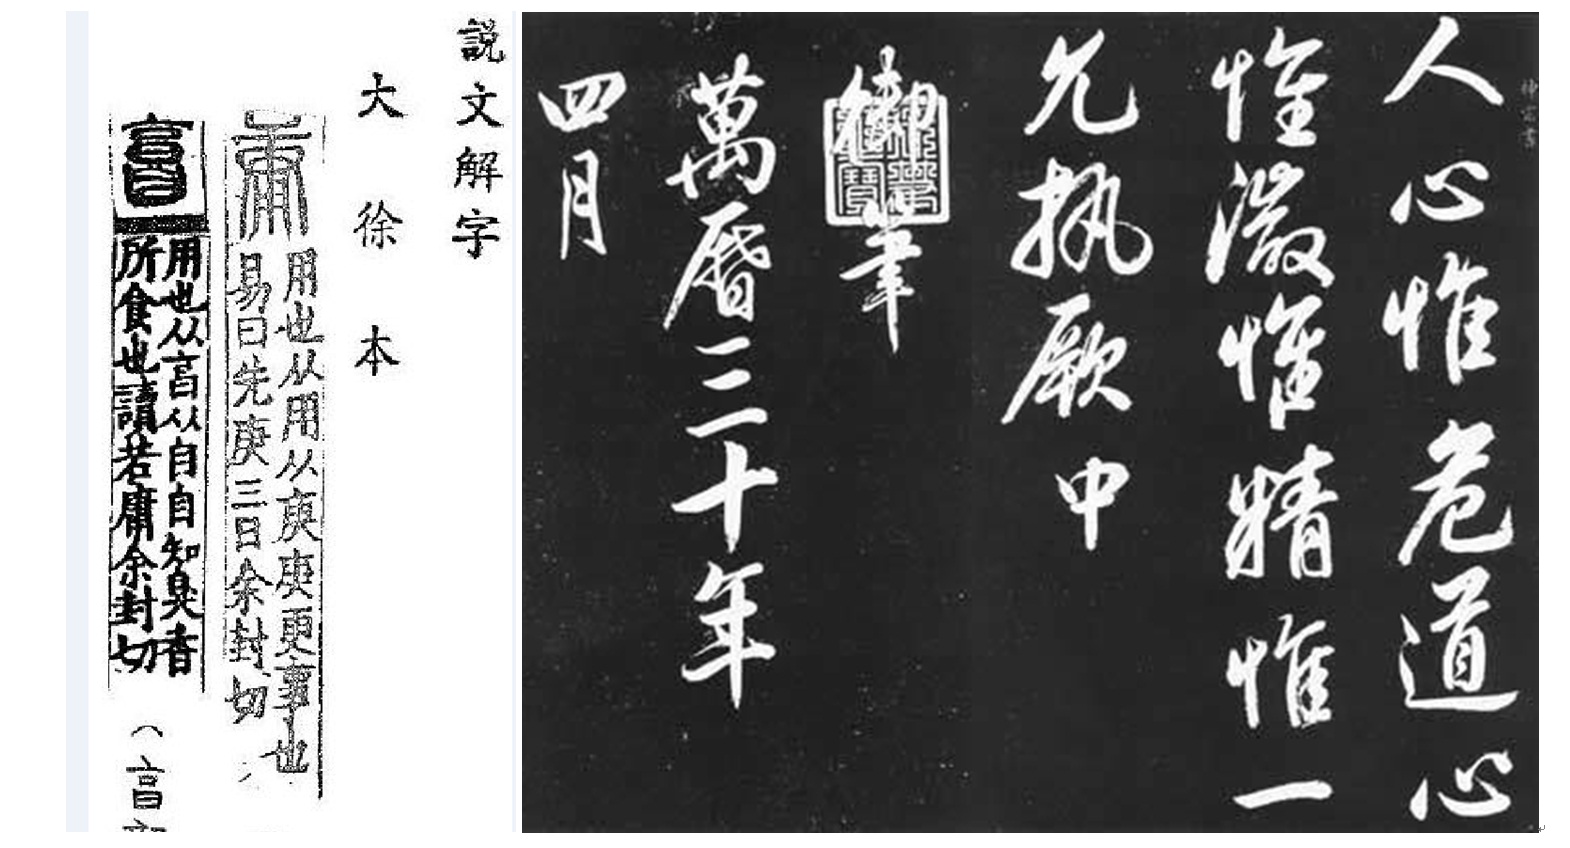 神宗書
人心惟危道心
惟微惟精惟一
允執厥中
御筆
萬曆三十年
四月
説文解字
大徐本
庸
用也从用从庚庚更事也
易曰先庚三日余封切
𦤘
用也从亯从自自知臭香
所食也讀若庸余封切
（亯部